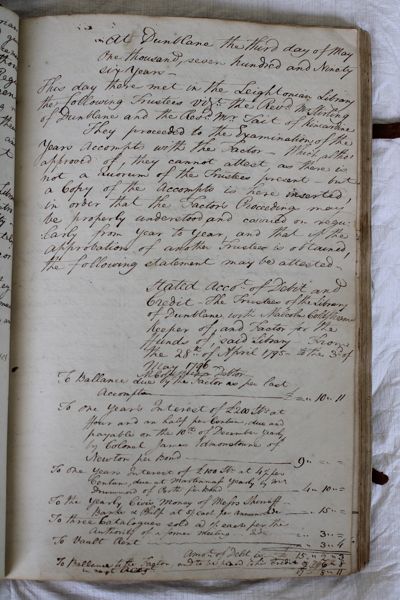 At Dunblane the third day of May
one thousand, seven hundred and Ninety
Six Years
This day there met in the Leightonian Library
the following Trustees vizt. the Revd. Mr Stirling
of Dunblane and the Revd Mr Tait of Kincardine
They proceeded to the Examination of the
Years Accompts with the Factor - Which altho
approved of, they cannot attest as there is
not a quorum of the Trustees present - but
a Copy of the Accompts is here inserted
in order that the Factors Preceding may
be properly understood and carried on regu
larly from year to year, and that if the
approbation of another Trustee is obtained,
the following statement may be attested -
Stated Accot. of Debit and
Credit - The Trustees of the Library
of Dunblane with Malcolm
Keeper of, and Factor for the
Funds of, said Library From
the 28th of April 1795 to the 3d of
May 1796
Debtor
To Ballance due by the Factor as per last
Accompt 10 11
To one years Interest of £200 St at
four and an half per Centum, due and
payable on the 10th of December
by Colonel James Edmonstoune of
Newton per Bond 9
To one years Interest of £100 St. at 4½ per
Centum, due at Martinmass yearly by
Drummond of Perth per Bond 4 10
To the Yearly Civic Money of Messrs
15
To three Catalogues sold
Authority of a former meeting 3
To Vault 3 4
Amot. of Debit
To Ballance